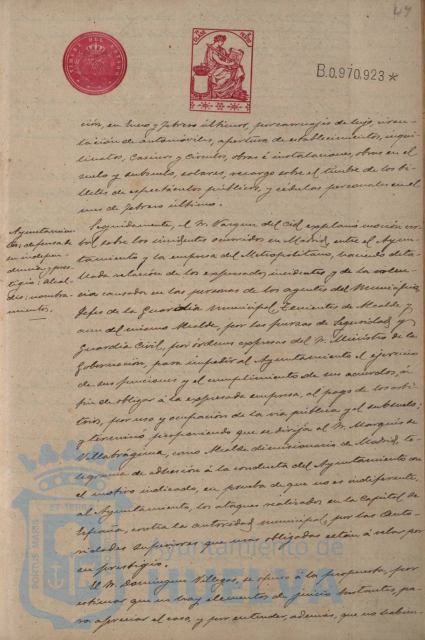 49
TIMBRE DEL ESTADO
B.0.970.923*
ción, en Enero y Febrero últimos, por carruajes de lujo, circu-
lación de automóviles, apertura de establecimientos, inqui-
linatos, Casinos y Círculos, obras é instalaciones, obras en el
suelo y subsuelo, solares, recargo sobre el timbre de los bi-
lletes de espectáculos públicos, y cédulas personales en el
mes de Febrero último.
Ayuntamien-
tos; defensa de
su indepen-
dencia y pres-
tigio: Alcal-
des; nombra-
mientos.
Seguidamente, el Sr. Vargas del Cid explanó moción ver-
bal sobre los incidentes ocurridos en Madrid, entre el Ayun-
tamiento y la empresa del Metropolitano, haciendo deta-
llada relación de los expresados incidentes y de la violen-
cia causada en las personas de los agentes del Municipio,
Jefes de la Guardia Municipal, Tenientes de Alcalde y
aun del mismo Alcalde, por las fuerzas de Seguridad y
Guardia Civil, por órdenes expresas del Sr. Ministro de la
Gobernación, para impedir al Ayuntamiento el ejercicio
de sus funciones y el cumplimiento de sus acuerdos, á
fin de obligar á la expresada empresa, al pago de los arbi-
trios, por uso y ocupación de la vía pública y el subsuelo;
y terminó proponiendo que se dirija al Sr. Marqués de
Villabrágima, como Alcalde dimisionario de Madrid, te-
legrama de adhesión á la conducta del Ayuntamiento con
el motivo indicado, en prueba de que no es indiferente
al Ayuntamiento, los ataques realizados en la Capital de
España, contra la autoridad municipal, por las Auto-
ridades superiores que más obligadas están á velar por
su prestigio.
El Sr. Domínguez Villegas, se opuso á la propuesta, por
estimar que no hay elementos de juicio bastantes, pa-
ra apreciar el caso, y por entender, además, que no habien-
PORTUS MARIS ET TERRAE
Ayuntamiento de
HUELVA